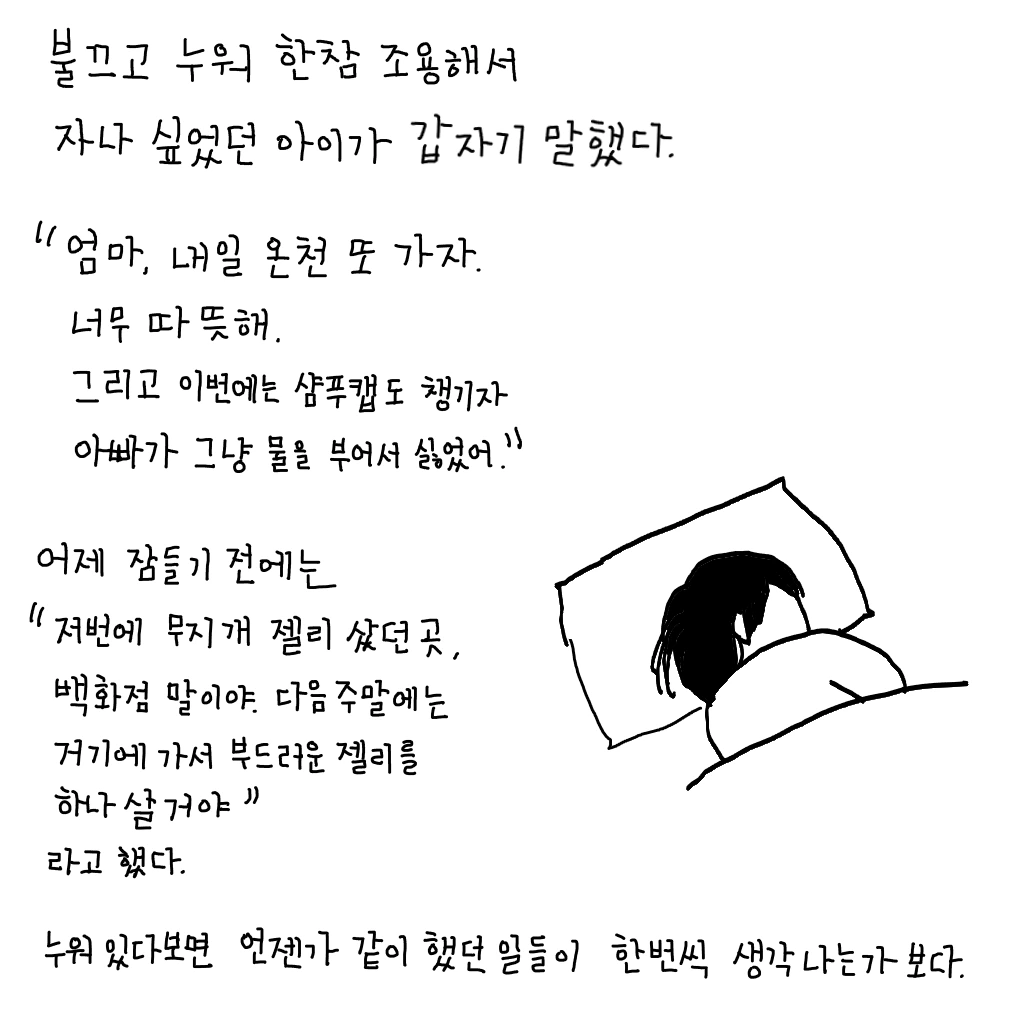 불끄고 누워 한참 조용해서
자나 싶었던 아이가 갑자기 말했다.
"엄마, 내일 온천 또 가자.
너무 따뜻해.
그리고 이번에는 샴푸캡도 챙기자
아빠가 그냥 물을 부어서 싫었어."
어제 잠들기 전에는
"저번에 무지개 젤리 샀던 곳,
백화점 말이야. 다음주말에는
거기에 가서 부드러운 젤리를
하나 살거야"
라고 했다.
누워있다보면 언젠가 같이 했던 일들이 한번씩 생각나는가보다.